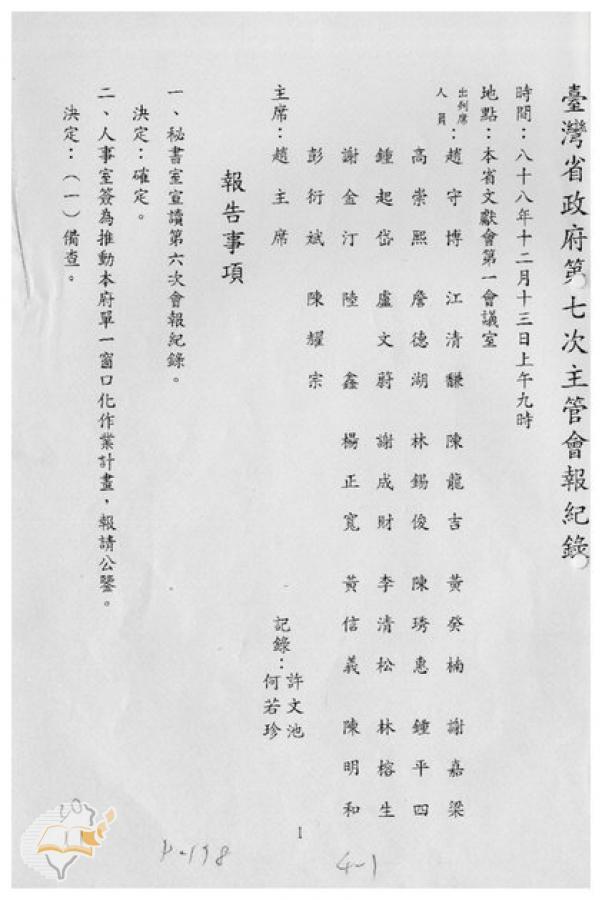 臺灣省政府第七次主管會報紀錄
時間：八十八年十二月十三日上午九時
地點：本省文獻會第一會議室
出列席人員：趙守博 江清馦 陳龍吉 黃癸楠 謝嘉梁
高崇熙 詹德湖 林錫俊 陳琇惠 鍾平四
鍾起岱 盧文蔚 謝成財 李清松 林榕生
謝金汀 陸鑫 楊正寬 黃信義 陳明和
彭衍斌 陳耀宗
主席：趙主席 記錄：許文池
何若珍
報告事項
一、秘書室宣讀第六次會報紀錄。
決定：確定。
二、人事室簽為推動本府單一窗口化作業計畫，報請公鑒。
決定：（一）備查。
1
4-1